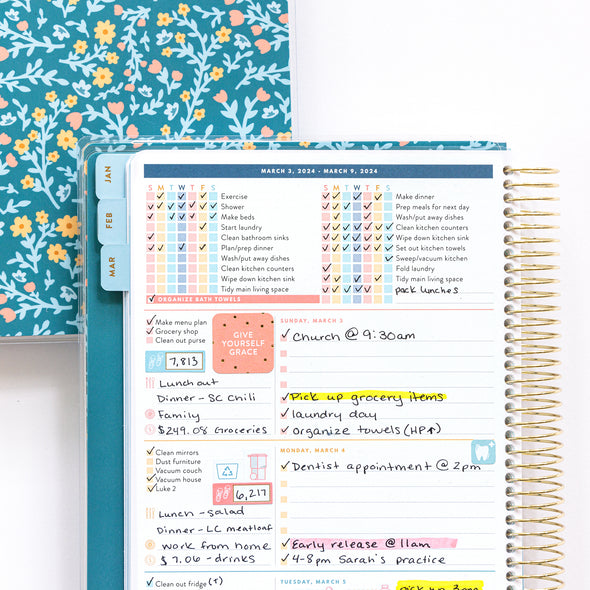 MARCH 3, 2024 - MARCH 9, 2024
JAN
FEB
MAR
S M T W T F S
Exercise
Shower
Make beds
Start laundry
Clean bathroom sinks
Plan/prep dinner
Wash/put away dishes
Clean kitchen counters
Wipe down kitchen sink
Tidy main living space
ORGANIZE BATH TOWELS
S M T W T F S
Make dinner
Prep meals for next day
Wash/put away dishes
Clean kitchen counters
Wipe down kitchen sink
Set out kitchen towels
Sweep/vacuum kitchen
Fold laundry
Wipe down kitchen sink
Tidy main living space
pack lunches
Make menu plan
Grocery shop
Clean out purse
GIVE
YOURSELF
GRACE
7,813
Lunch out
Dinner - SC Chili
Family
$249.08 Groceries
SUNDAY, MARCH 3
Church @ 9:30am
Pick up grocery items
laundry day
organize towels (HP↑)
Clean mirrors
Dust furniture
Vacuum couch
Vacuum house
Luke 2
6,217
Lunch - salad
Dinner - LC meatloaf
Work from home
$7.06 - drinks
MONDAY, MARCH 4
Dentist appointment @ 2pm
Early release @ 11am
4-8pm Sarah's practice
Clean out fridge (↑)
TUESDAY, MARCH 5
pick up 3pm